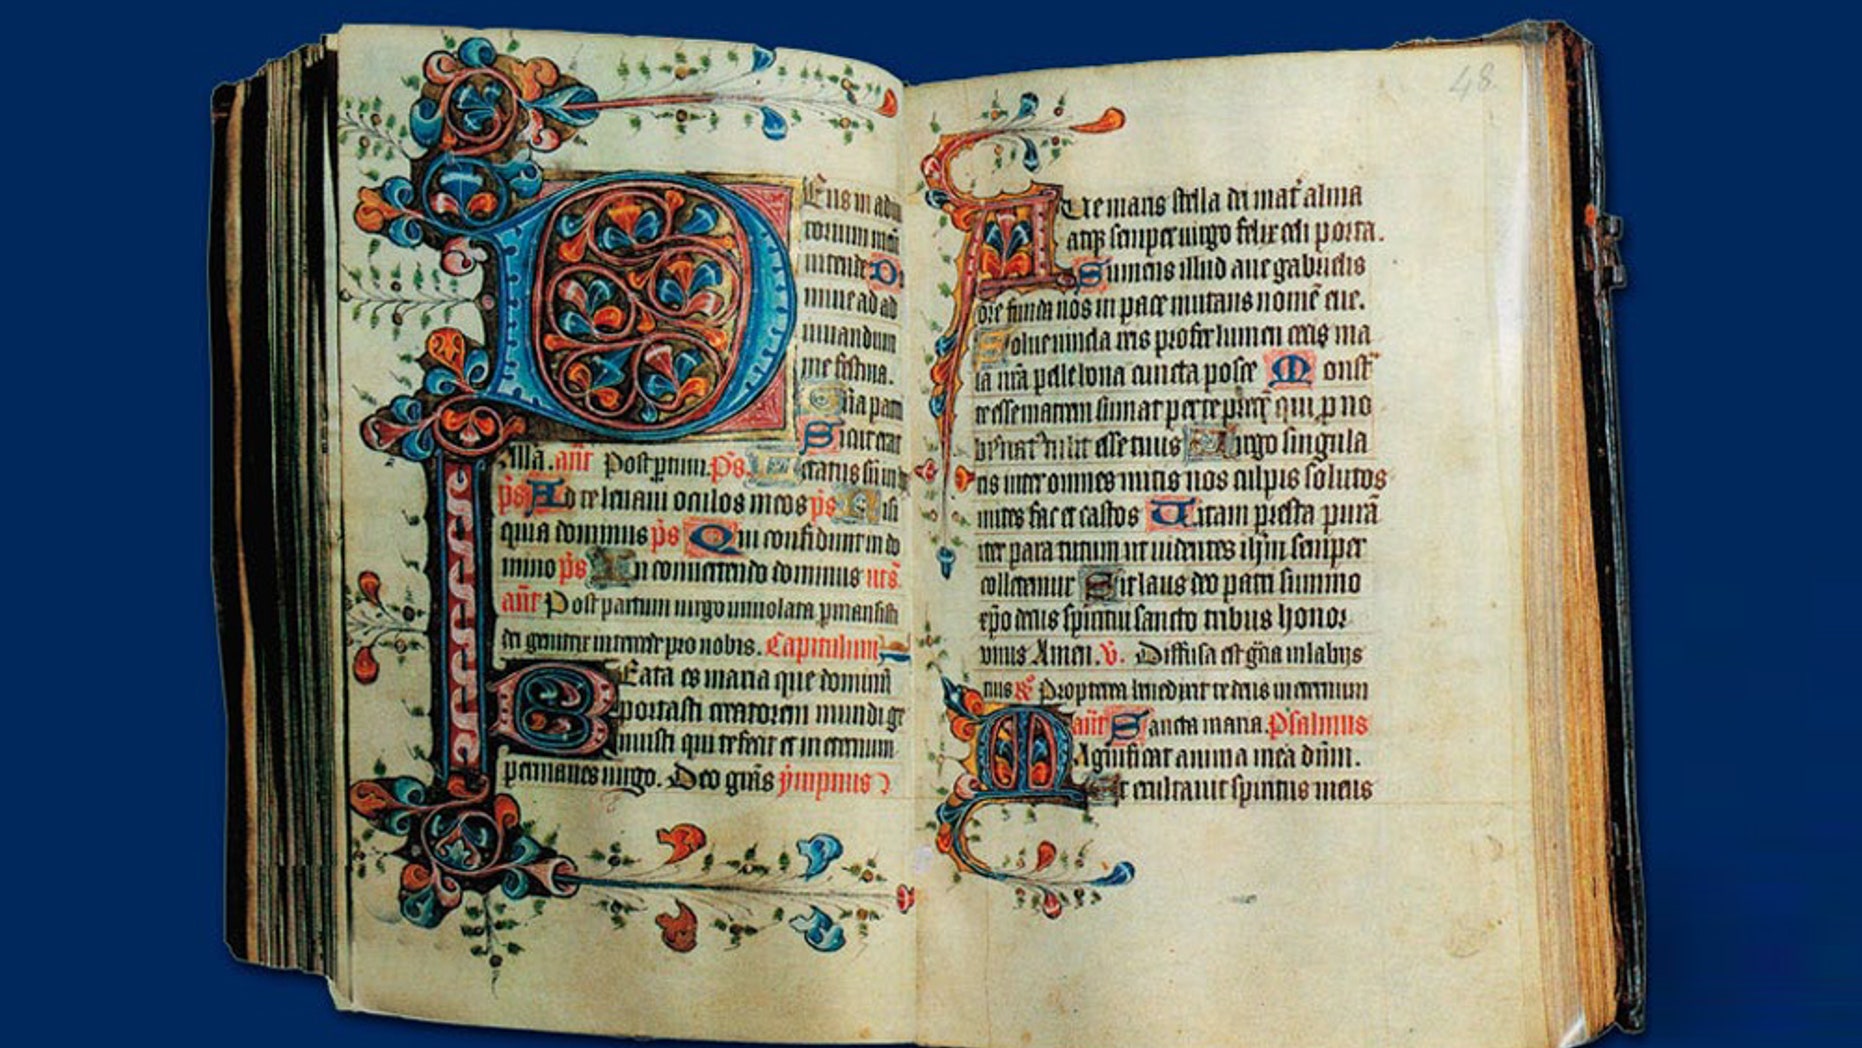 Eus in adiu
torium meū
intende Do
mine ad ad
iuuandum
me festina.
Gl̄ia patri
Sicut erat
Alla. an̄t Post ꝑtum. ps. Letatus sū in h
ps Ad te leuaui oculos meos ps Nisi
quia dominus ps Qui confidunt in do
mino ps In conuertendo dominus
an̄t Post partum uirgo inuiolata ꝑmansisti
dei genitrix intercede pro nobis. Capitulum
Eata es maria que dominū
portasti creatorem mundi ge
nuisti qui te fecit et in eternum
permanes uirgo. Deo grās ympnus
48
Ue maris stella dei mat̄ alma
atqꝫ semper uirgo felix celi porta.
Sumens illud aue gabrielis
ore funda nos in pace mutans nomē eue.
Solue uincla reis profer lumen cecis ma
la nrā pelle bona cuncta posce Monst̄
te esse matrem sumat per te prec̄ qui ꝓ no
bis nat᷒ tulit esse tuus Uirgo singula
ris inter omnes mitis nos culpis solutos
mites fac et castos Uitam presta purā
iter para tutum ut uidentes ihm̄ semper
colletemur Sit laus deo patri summo
xp̄o decus spiritui sancto tribus honor
unus Amen. v. Diffusa est grā in labijs
tuis ꝶ Propterea benedixit te deus in eternum
an̄t Sancta maria. Psalmus
Agnificat anima mea dn̄m.
Et exultauit spiritus meus